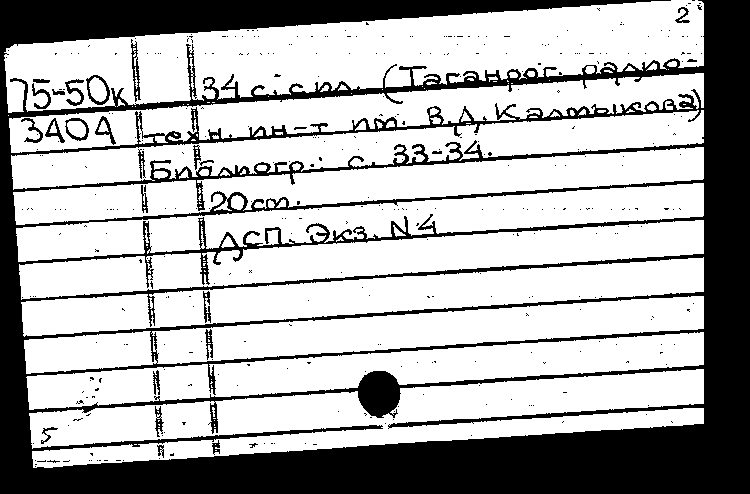 2
75-50к 34 с. с ил. (Таганрог. радио-
3404 техн. ин-т им. В.Д. Калмыкова)
Библиогр.: с. 33-34.
20 см.
ДСП. Экз. N 4
5